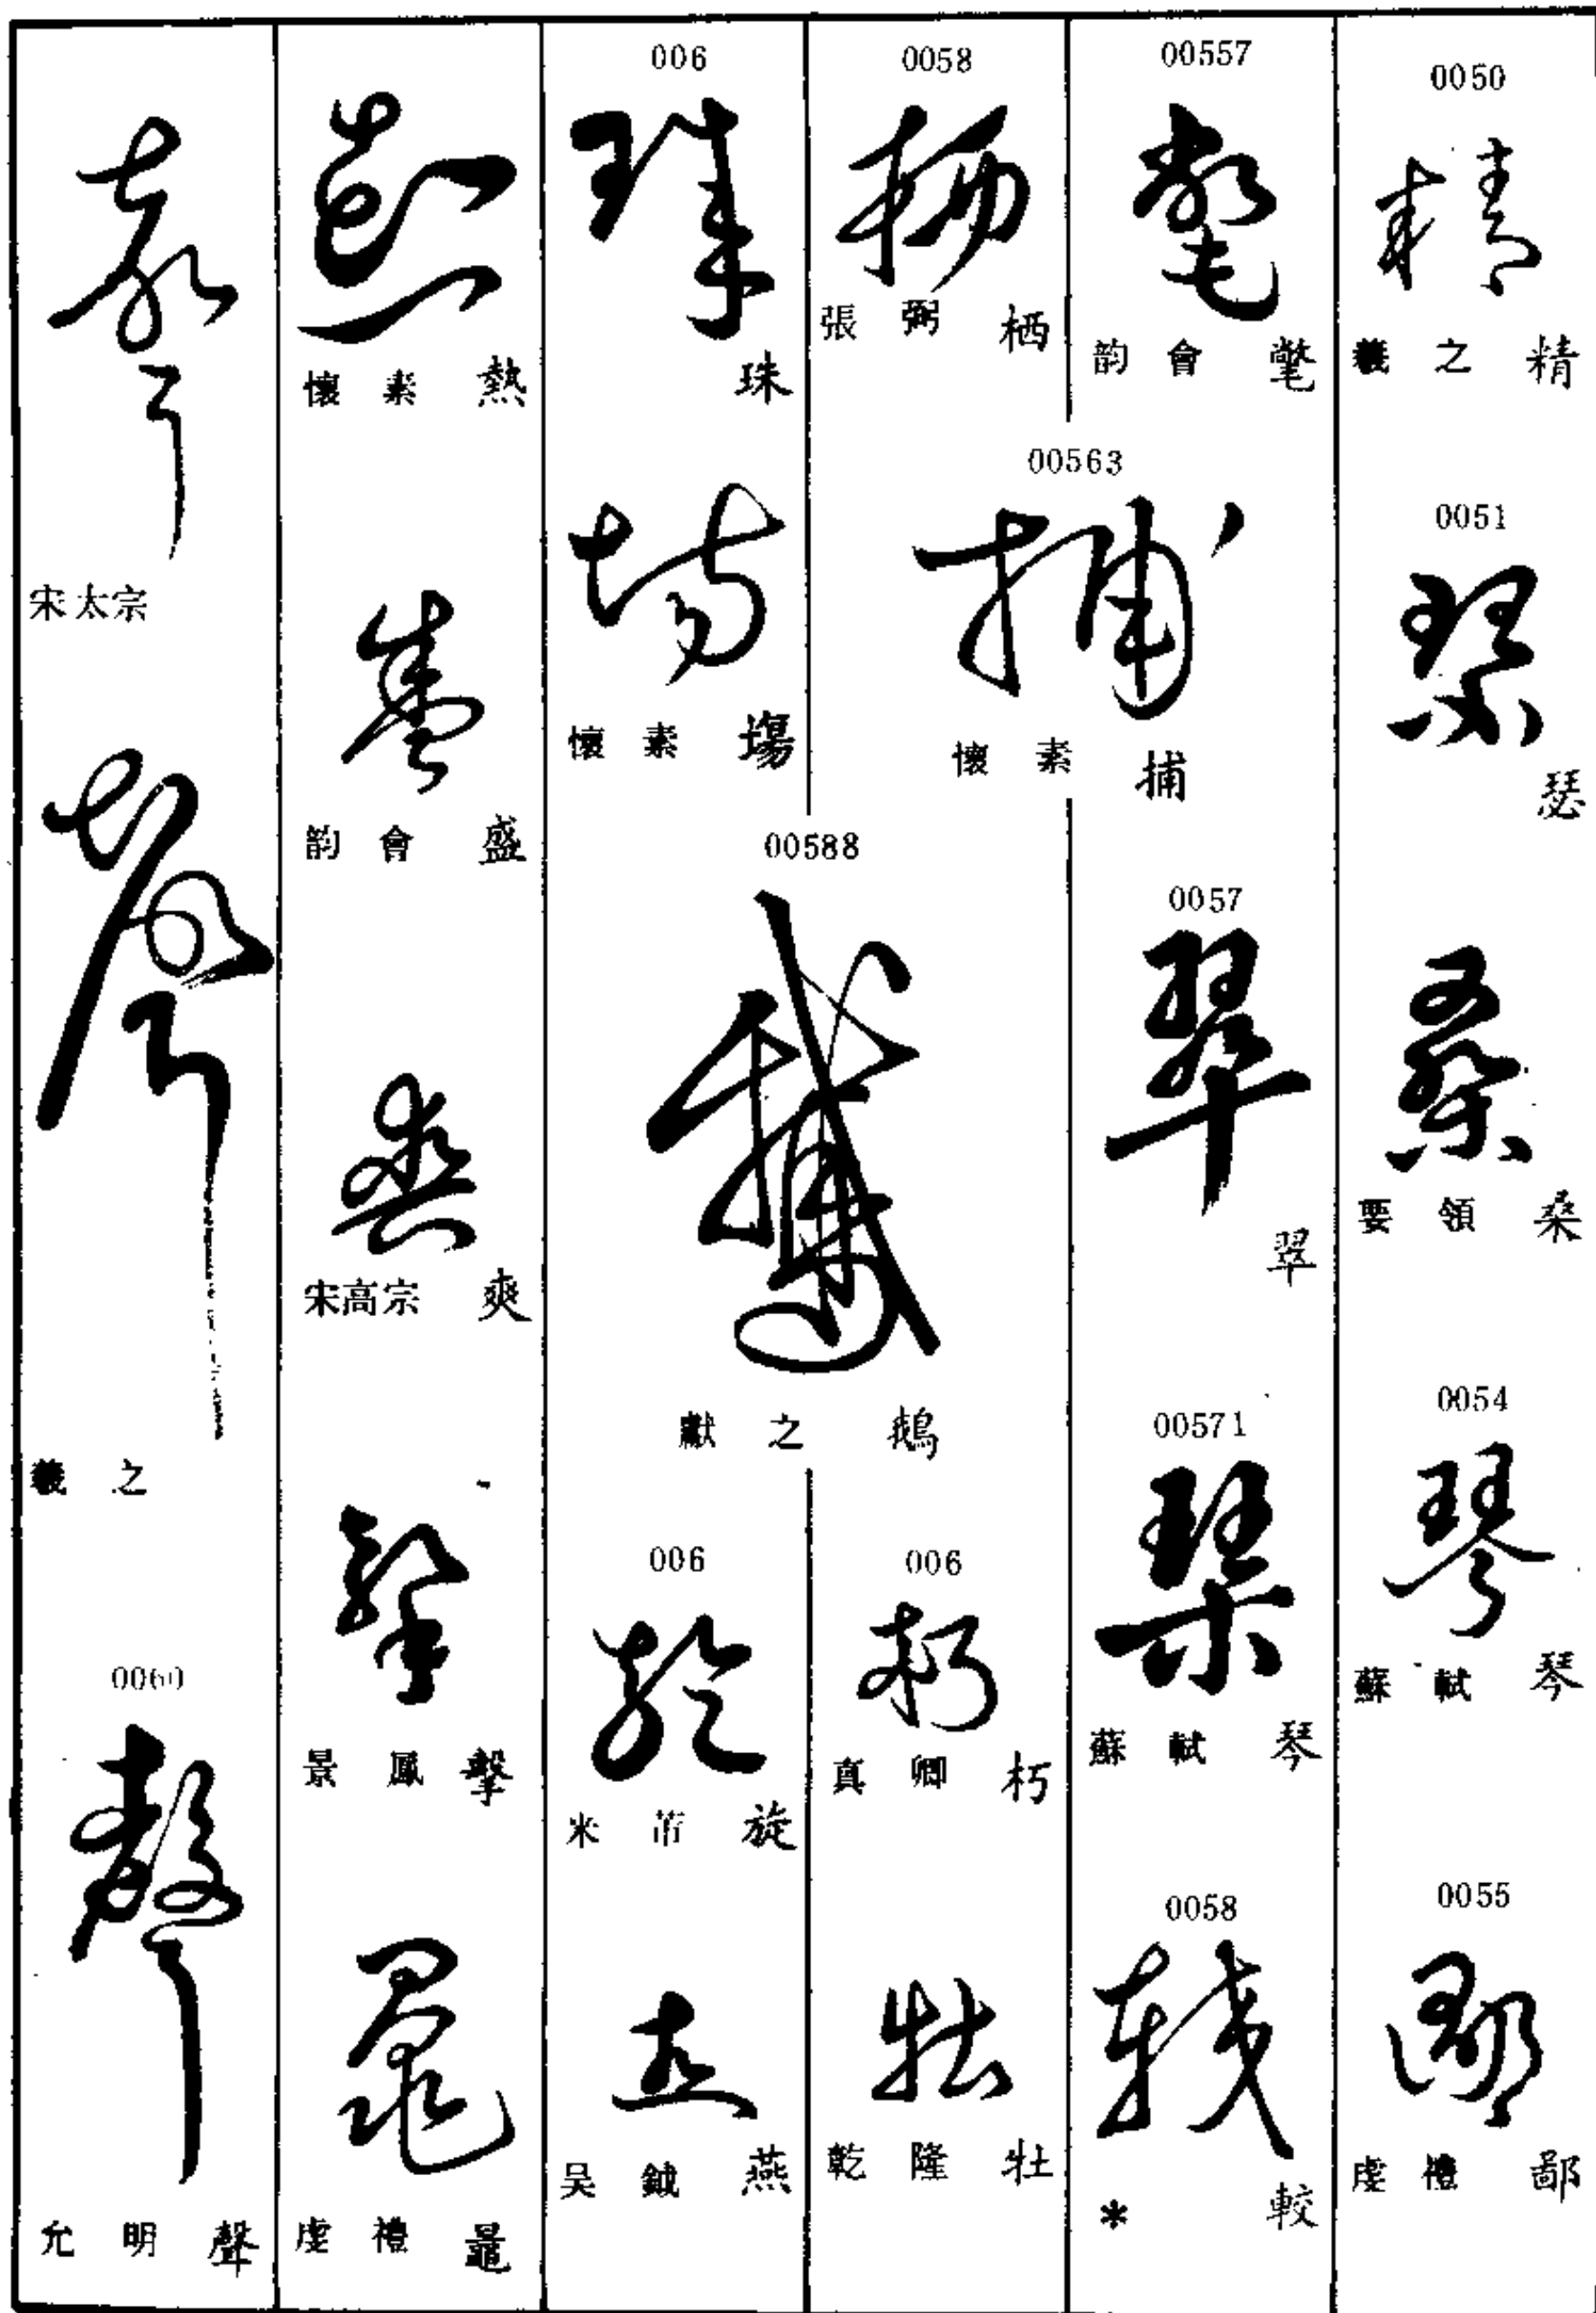 0050
精
羲之 精
0051
瑟
瑟
桑
要領 桑
0054
琴
蘇軾 琴
0055
鄙
虔禮 鄙
00557
氅
韵會 氅
00563
捕
懷素 捕
0057
翠
翠
00571
琴
蘇軾 琴
0058
較
* 較
0058
栖
張弼 栖
00588
鵝
獻之 鵝
006
朽
真卿 朽
牡
乾隆 牡
006
珠
珠
場
懷素 場
006
旋
米芾 旋
燕
吴鉞 燕
熱
懷素 熱
盛
韵會 盛
爽
宋高宗 爽
擊
景鳳 擊
鼂
虔禮 鼂
聲
宋太宗
聲
羲之
0060
聲
允明 聲